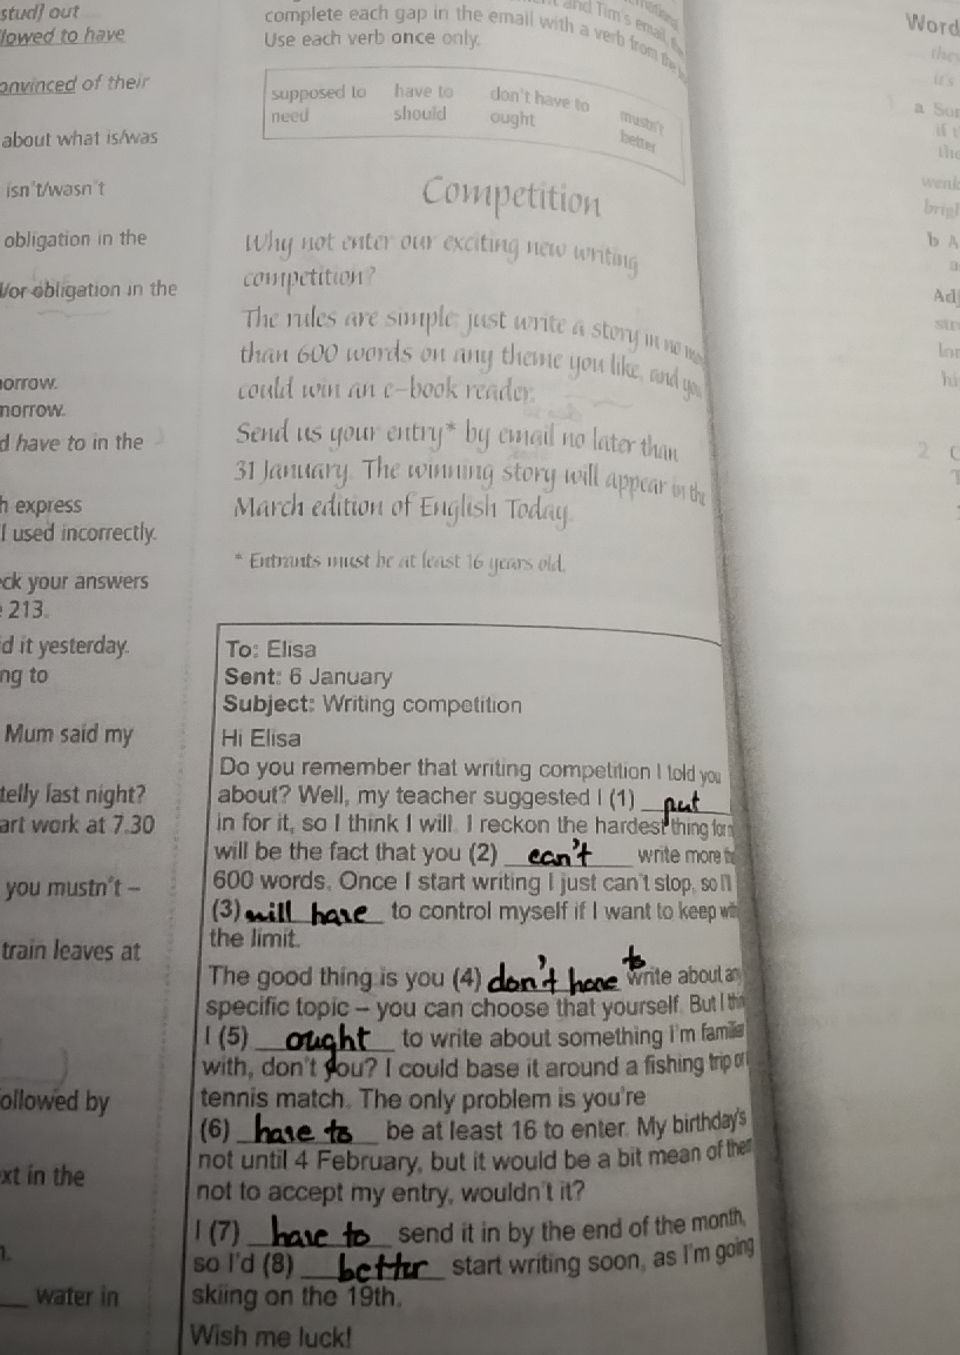 stud] out
lowed to have
onvinced of their
about what is/was
isn't/wasn't
obligation in the
l/or obligation in the
norrow.
norrow.
d have to in the
h express
l used incorrectly.
ck your answers
213.
d it yesterday.
ng to
Mum said my
telly last night?
art work at 7.30
you mustn't –
train leaves at
ollowed by
xt in the
water in
and Tim's email,
complete each gap in the email with a verb from the
Use each verb once only.
supposed to have to don't have to mustn't
need should ought better
Competition
Why not enter our exciting new writing
competition?
The rules are simple: just write a story in no
than 600 words on any theme you like, and you
could win an e-book reader.
Send us your entry* by email no later than
31 January. The winning story will appear in the
March edition of English Today.
* Entrants must be at least 16 years old.
To: Elisa
Sent: 6 January
Subject: Writing competition
Hi Elisa
Do you remember that writing competition I told you
about? Well, my teacher suggested I (1) put
in for it, so I think I will. I reckon the hardest thing for
will be the fact that you (2) can't write more
600 words. Once I start writing I just can't stop, so I'll
(3) will have to control myself if I want to keep
the limit.
The good thing is you (4) don't have to write about
specific topic – you can choose that yourself. But I
I (5) ought to write about something I'm
with, don't you? I could base it around a fishing trip or
tennis match. The only problem is you're
(6) have to be at least 16 to enter. My birthday's
not until 4 February, but it would be a bit mean of them
not to accept my entry, wouldn't it?
I (7) have to send it in by the end of the month,
so I'd (8) better start writing soon, as I'm going
skiing on the 19th.
Wish me luck!
Word
a
b
Adj
2